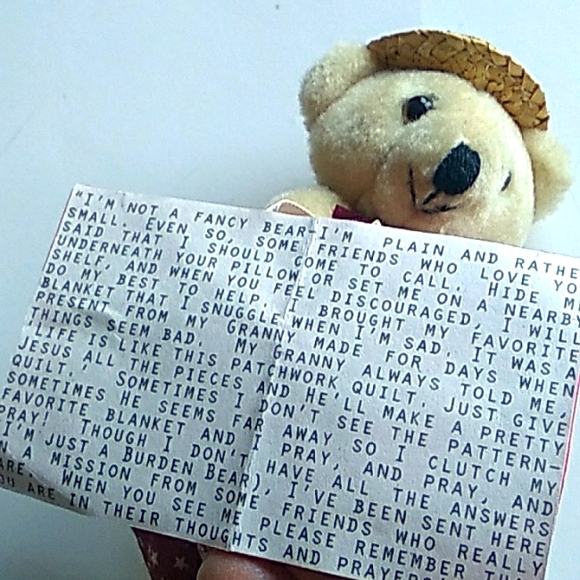 "I'M NOT A FANCY BEAR-I'M PLAIN AND RATHE
SMALL. EVEN SO, SOME FRIENDS WHO LOVE YO
SAID THAT I SHOULD COME TO CALL. HIDE M
UNDERNEATH YOUR PILLOW OR SET ME ON A NEARBY
SHELF, AND WHEN YOU FEEL DISCOURAGED, I WILL
DO MY BEST TO HELP. I BROUGHT MY FAVORITE
BLANKET THAT I SNUGGLE WHEN I'M SAD. IT WAS A
PRESENT FROM MY GRANNY MADE FOR DAYS WHEN
THINGS SEEM BAD. MY GRANNY ALWAYS TOLD ME,
'LIFE IS LIKE THIS PATCHWORK QUILT, JUST GIVE
JESUS ALL THE PIECES AND HE'LL MAKE A PRETTY
QUILT.' SOMETIMES I DON'T SEE THE PATTERN-
SOMETIMES HE SEEMS FAR AWAY SO I CLUTCH MY
FAVORITE BLANKET AND I PRAY, AND PRAY, AND
PRAY! THOUGH I DON'T HAVE ALL THE ANSWERS
(I'M JUST A BURDEN BEAR), I'VE BEEN SENT HERE
N A MISSION FROM SOME FRIENDS WHO REALLY
ARE. WHEN YOU SEE ME PLEASE REMEMBER TH
OU ARE IN THEIR THOUGHTS AND PRAYER